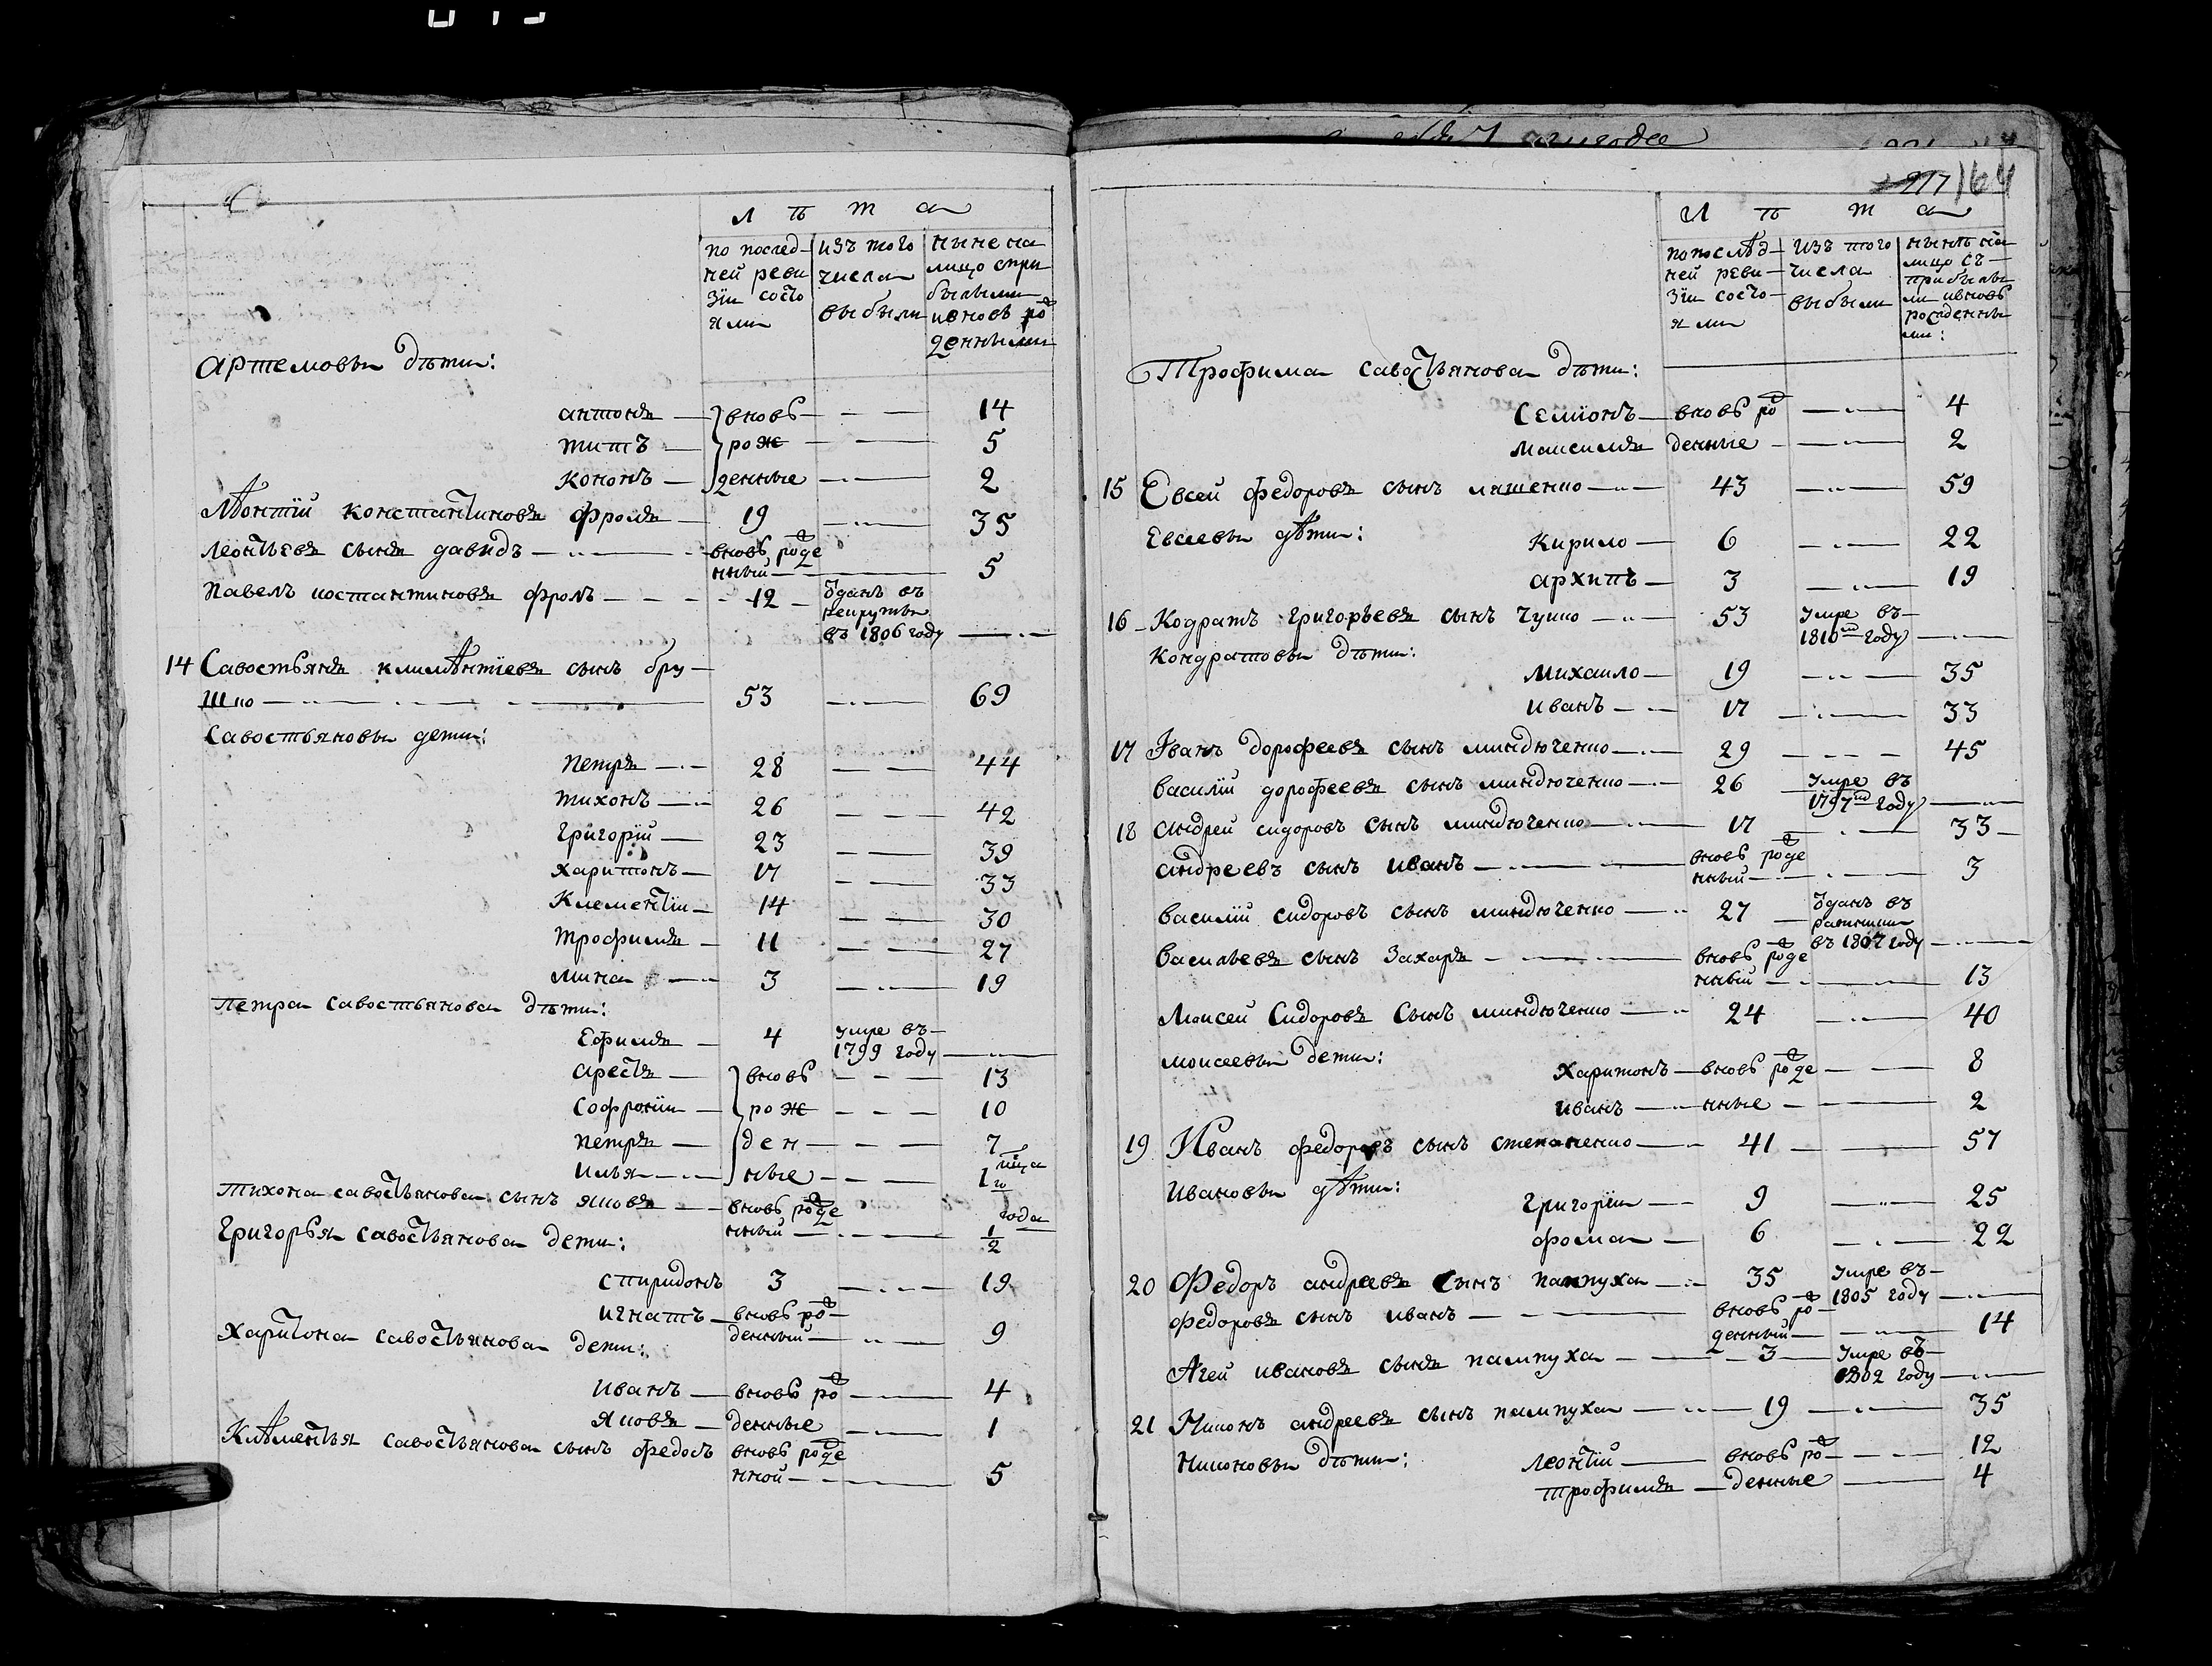 Л ѣ т а
по послед-
ней реви
зїи состо
яли
изъ того
числа
выбыли
ныне на
лицо спри
былыми
ивновь ро
денными
артемовы дѣти:
антонъ — вновь — 14
титъ — рож — 5
кононъ — денные — 2
Леонтїй константиновъ фролъ — 19 — 35
леонтьевъ сынъ давидъ — вновь рожде
нный — 5
павелъ костантиновъ фролъ — 12 — ѿданъ въ
рекруты
въ 1806 году —
14 Савостьянъ климентїевъ сынъ бру-
шко — 53 — 69
Савостьяновы дети:
петръ — 28 — 44
тихонъ — 26 — 42
Григорїй — 23 — 39
харитонъ — 17 — 33
Клементїи — 14 — 30
трофимъ — 11 — 27
мина — 3 — 19
петра савостьянова дѣти:
Ефимъ — 4 — умре въ-
1799 году —
арестъ — вновь — 13
софронїи — рож — 10
петръ — ден — 7
илья — ные — 1 мца
тихона савостьянова сынъ яковъ — вновь рожде
нный — 1/2 года
Григорья савостьянова дети:
спиридонъ 3 — 19
игнатъ — вновь ро-
денный — 9
харитона савостьянова дети:
иванъ — вновь ро — 4
яковъ — денные — 1
Клементья савостьянова сынъ федосъ вновь рожде
нной — 5
217 164
Л ѣ т а
по послѣд-
ней реви-
зїи состо-
яли
изъ того
числа
выбыли
нынѣ на
лицо съ-
прибылы
ми ивновь
рожденны
ми:
Трофима савостьянова дѣти:
Семїонъ — вновь ро — 4
максимъ денные — 2
15 Евсей федоровъ сынъ ляшенко — 43 — 59
Евсеевы дѣти:
Кирило — 6 — 22
архипъ — 3 — 19
16 Кодратъ григорьевъ сынъ чушко — 53 умре въ-
1810го году —
кондратовы дѣти:
михаило — 19 — 35
иванъ — 17 — 33
17 Іванъ дорофеевъ сынъ миндюченко — 29 — 45
василїй дорофеевъ сынъ миндюченко — 26 умре въ
1797го году —
18 андрей сидоровъ сынъ миндюченко — 17 — 33
андреевъ сынъ иванъ — вновь рожде
нный — 3
василїй сидоровъ сынъ миндюченко — 27 — ѿданъ въ
въ 1807 году —
васильевъ сынъ захаръ — вновь рожде
нный — 13
Моисей Сидоровъ Сынъ миндюченко — 24 — 40
моисеевы дети:
харитонъ — вновь рожде — 8
иванъ — нные — 2
19 Иванъ федоровъ сынъ степаненко — 41 — 57
ивановы дѣти:
григорїи — 9 — 25
фома — 6 — 22
20 Федоръ андреевъ сынъ пампуха — 35 умре въ-
1805 году —
федоровъ сынъ иванъ — вновь ро-
денный — 14
Агей ивановъ сынъ пампуха — 3 — умре въ-
1802 году —
21 Никонъ андреевъ сынъ пампуха — 19 — 35
никоновы дѣти:
леонтїй — вновь ро- — 12
трофимъ — денные — 4